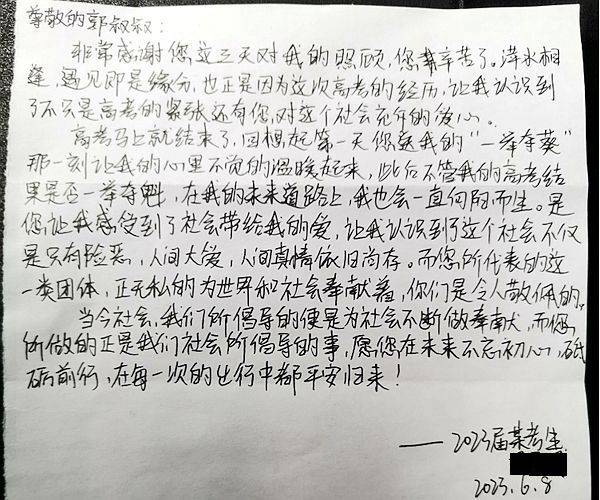 尊敬的郭叔叔：
非常感谢您这三天对我的照顾，您辛苦了。萍水相
逢，遇见即是缘分，也正是因为这次高考的经历，让我认识到
了不只是高考的紧张还有您对这个社会充斥的爱心。
高考马上就结束了，回想起第一天您送我的“一举夺葵”
那一刻让我的心里不觉的温暖起来，此后不管我的高考结
果是否一举夺魁，在我的未来道路上，我也会一直向阳而生。是
您让我感受到了社会带给我的爱，让我认识到了这个社会不仅
是只有险恶，人间大爱，人间真情依旧尚存。而您所代表的这
一类团体，正无私的为世界和社会奉献着，你们是令人敬佩的。
当今社会，我们所倡导的便是为社会不断做奉献，而您
所做的正是我们社会所倡导的事，愿您在未来不忘初心，砥
砺前行，在每一次的出行中都平安归来！
——2023届某考生
2023.6.8